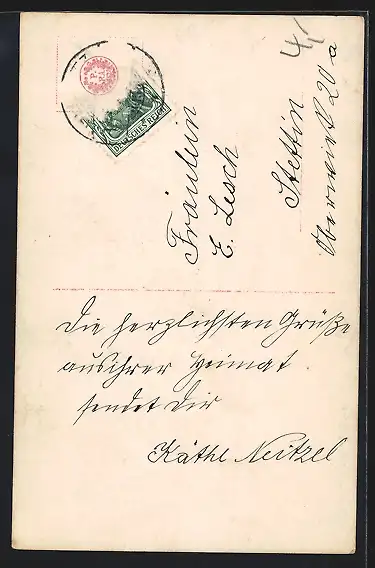 4/1
DEUTSCHES REICH
Fräulein
E. Lesch
Stettin
Oberwiek 20a
Die herzlichsten Grüße
aus ihrer Heimat.
sendet Dir
Käthe Neitzel